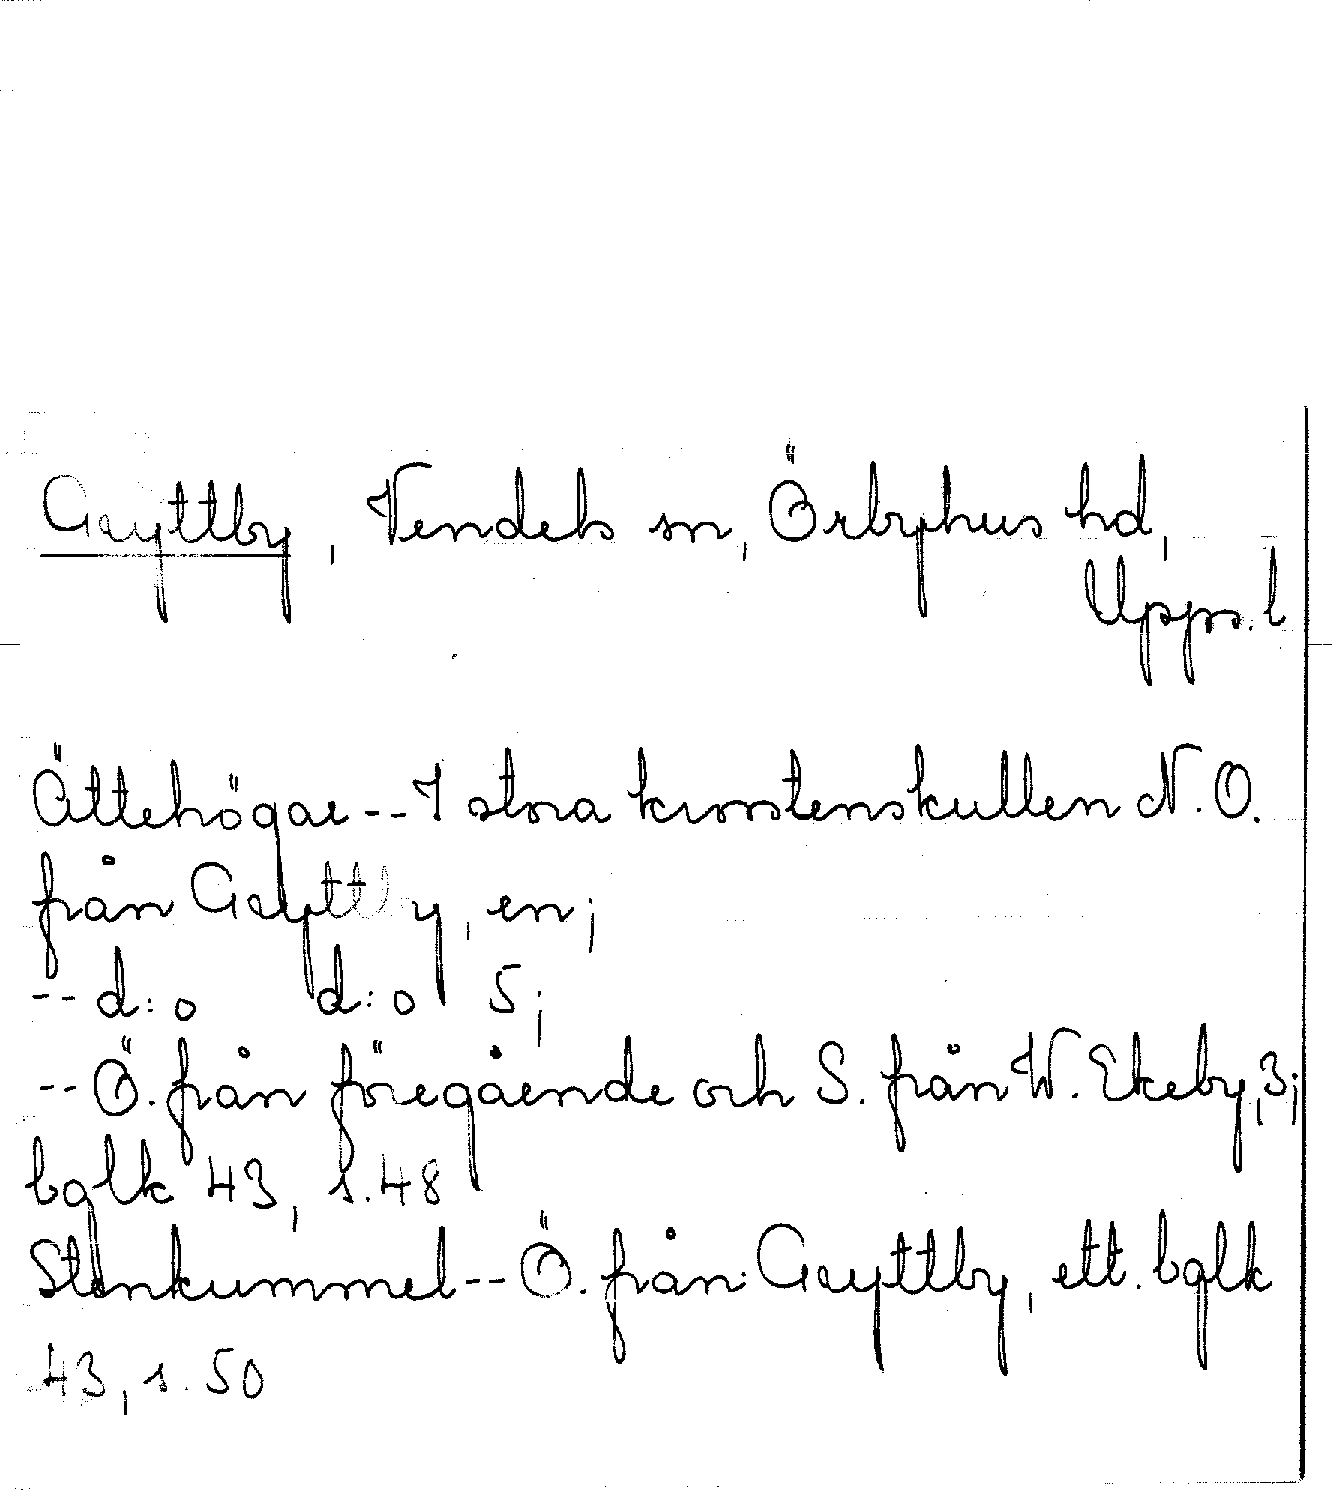 Gayttby, Vendels sn, Örbyhus hd,
Upps. l
Ättehögar -- I stora korstenskullen N.O.
från Gayttby, en;
-- d:o d:o 5;
-- Ö. från föregående och S. från W. Ekeby, 3;
bglk 43, s. 48
Stenkummel -- Ö. från Gayttby, ett. bglk
43, s. 50